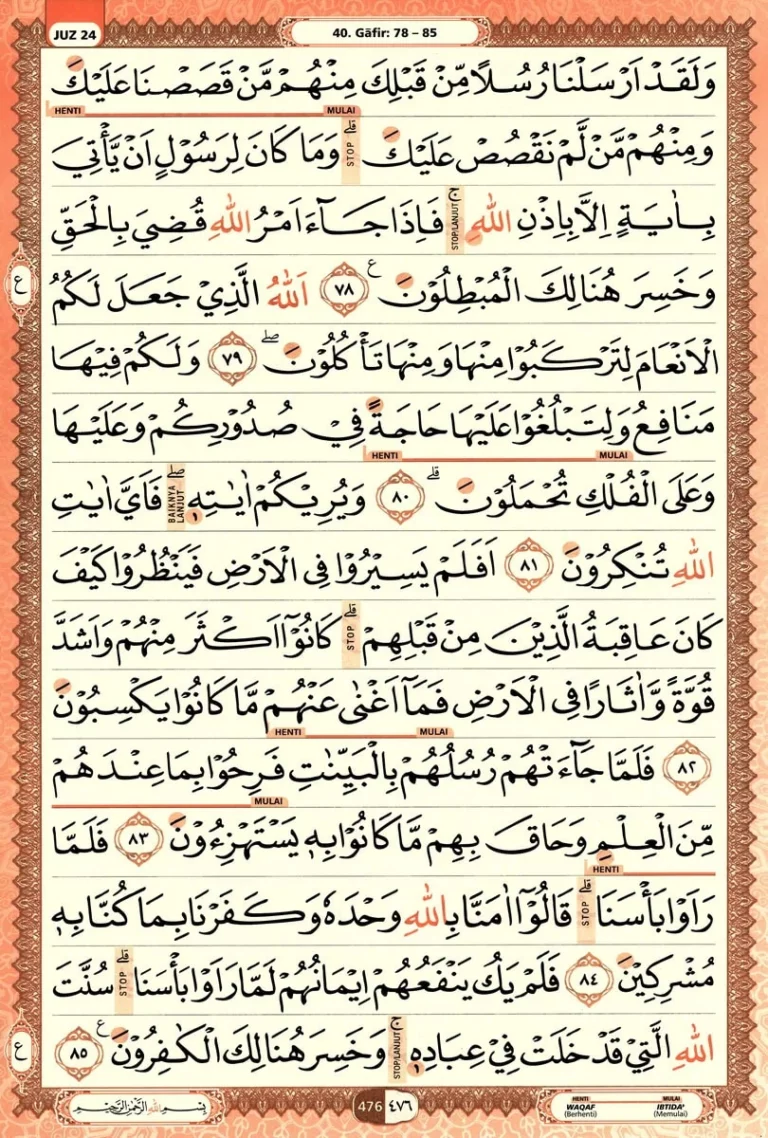 JUZ 24
40. Gāfir: 78 – 85
وَلَقَدْ اَرْسَلْنَا رُسُلًا مِّنْ قَبْلِكَ مِنْهُمْ مَّنْ قَصَصْنَا عَلَيْكَ
HENTI MULAI
وَمِنْهُمْ مَّنْ لَّمْ نَقْصُصْ عَلَيْكَ ۗ STOP وَمَا كَانَ لِرَسُوْلٍ اَنْ يَّأْتِيَ
بِاٰيَةٍ اِلَّا بِاِذْنِ اللّٰهِ ۚ STOP/LANJUT فَاِذَا جَاۤءَ اَمْرُ اللّٰهِ قُضِيَ بِالْحَقِّ
ع
وَخَسِرَ هُنَالِكَ الْمُبْطِلُوْنَ ࣖ ٧٨ اَللّٰهُ الَّذِيْ جَعَلَ لَكُمُ
الْاَنْعَامَ لِتَرْكَبُوْا مِنْهَا وَمِنْهَا تَأْكُلُوْنَ ۖ ٧٩ وَلَكُمْ فِيْهَا
مَنَافِعُ وَلِتَبْلُغُوْا عَلَيْهَا حَاجَةً فِيْ صُدُوْرِكُمْ وَعَلَيْهَا
HENTI MULAI
وَعَلَى الْفُلْكِ تُحْمَلُوْنَ ۗ ٨٠ وَيُرِيْكُمْ اٰيٰتِهٖ ۖ BAIKNYA LANJUT فَاَيَّ اٰيٰتِ
اللّٰهِ تُنْكِرُوْنَ ٨١ اَفَلَمْ يَسِيْرُوْا فِى الْاَرْضِ فَيَنْظُرُوْا كَيْفَ
كَانَ عَاقِبَةُ الَّذِيْنَ مِنْ قَبْلِهِمْ ۗ STOP كَانُوْٓا اَكْثَرَ مِنْهُمْ وَاَشَدَّ
قُوَّةً وَّاٰثَارًا فِى الْاَرْضِ فَمَآ اَغْنٰى عَنْهُمْ مَّا كَانُوْا يَكْسِبُوْنَ
HENTI MULAI
٨٢ فَلَمَّا جَاۤءَتْهُمْ رُسُلُهُمْ بِالْبَيِّنٰتِ فَرِحُوْا بِمَا عِنْدَهُمْ
MULAI
مِّنَ الْعِلْمِ وَحَاقَ بِهِمْ مَّا كَانُوْا بِهٖ يَسْتَهْزِءُوْنَ ٨٣ فَلَمَّا
HENTI
رَاَوْا بَأْسَنَا ۗ STOP قَالُوْٓا اٰمَنَّا بِاللّٰهِ وَحْدَهٗ وَكَفَرْنَا بِمَا كُنَّا بِهٖ
مُشْرِكِيْنَ ٨٤ فَلَمْ يَكُ يَنْفَعُهُمْ اِيْمَانُهُمْ لَمَّا رَاَوْا بَأْسَنَا ۗ STOP سُنَّتَ
اللّٰهِ الَّتِيْ قَدْ خَلَتْ فِيْ عِبَادِهٖ ۚ STOP/LANJUT وَخَسِرَ هُنَالِكَ الْكٰفِرُوْنَ ࣖ ٨٥
ع
بِسْمِ اللّٰهِ الرَّحْمٰنِ الرَّحِيْمِ
476 ٤٧٦
HENTI MULAI
WAQAF IBTIDA'
(Berhenti) (Memulai)